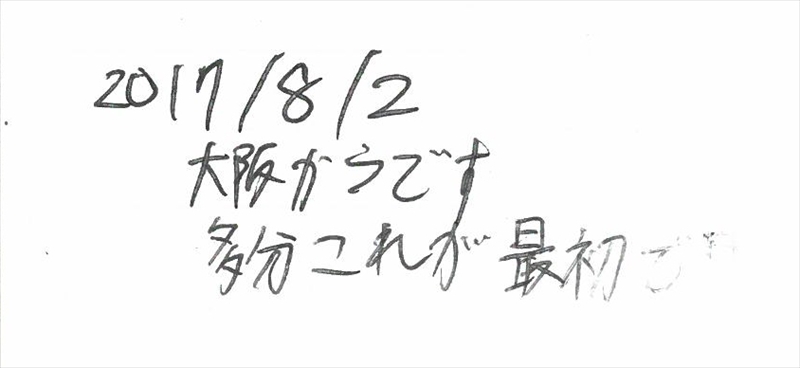 2017/8/2
大阪からです
多分これが最初で